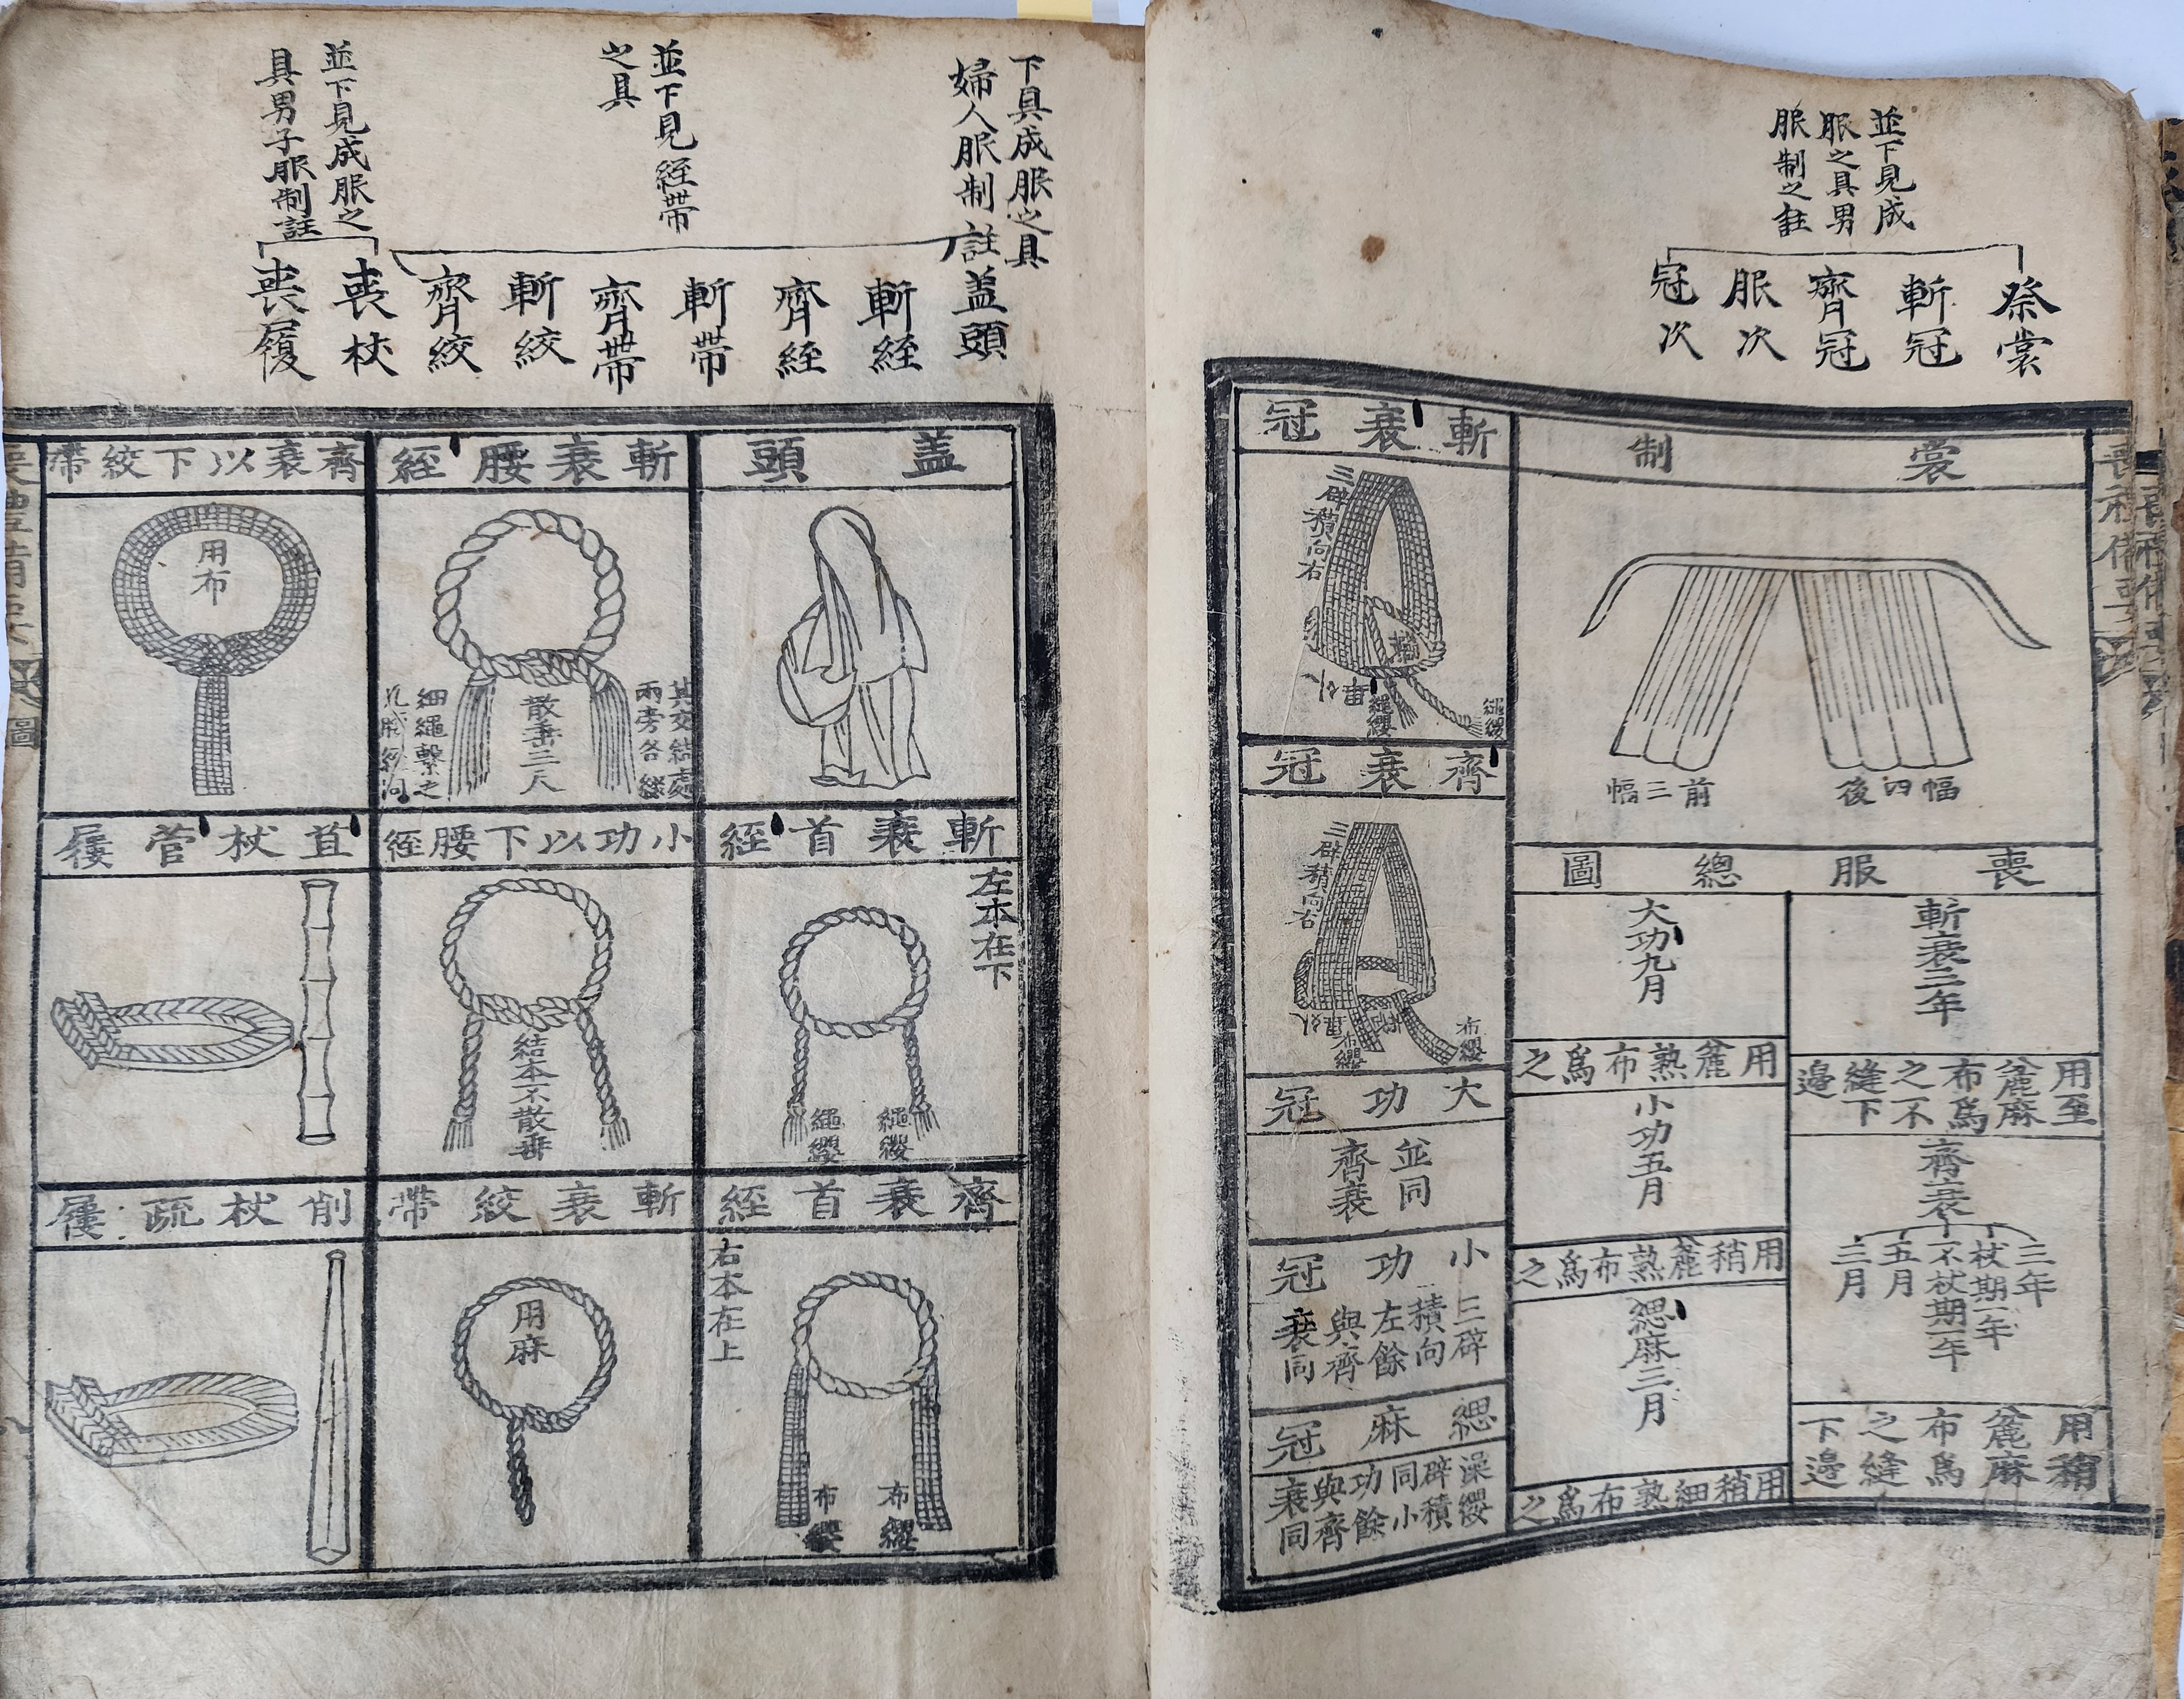 並下見成
服之具男
服制之註
祭裳
斬冠
齊冠
服次
冠次
裳制
前三幅
後四幅
喪服總圖
斬衰三年
用至
麄麻
布爲
之不
縫下
邊
齊衰
三年
杖期一年
不杖期一年
五月
三月
用稍
麄麻
布爲
之縫
下邊
大功九月
用麄熟布爲之
小功五月
用稍麄熟布爲之
緦麻三月
用稍細熟布爲之
斬衰冠
三辟積向右
繩纓
繩纓
齊衰冠
三辟積向右
布纓
布纓
大功冠
並同
齊衰
小功冠
三辟
積向
左餘
與齊
衰同
緦麻冠
澡纓
辟積
同小
功餘
與齊
衰同
下具成服之具
婦人服制註
並下見絰帶
之具
並下見成服之
具男子服制註
盖頭
斬絰
齊絰
斬帶
齊帶
斬絞
齊絞
喪杖
喪履
盖頭
斬衰首絰
左本在下
繩纓
繩纓
齊衰首絰
右本在上
布纓
布纓
斬衰腰絰
其交結處
兩旁各綴
散垂三尺
細繩繫之
小功以下腰絰
結本不散垂
斬衰絞帶
用麻
齊衰以下絞帶
用布
苴杖菅屨
削杖疏屨